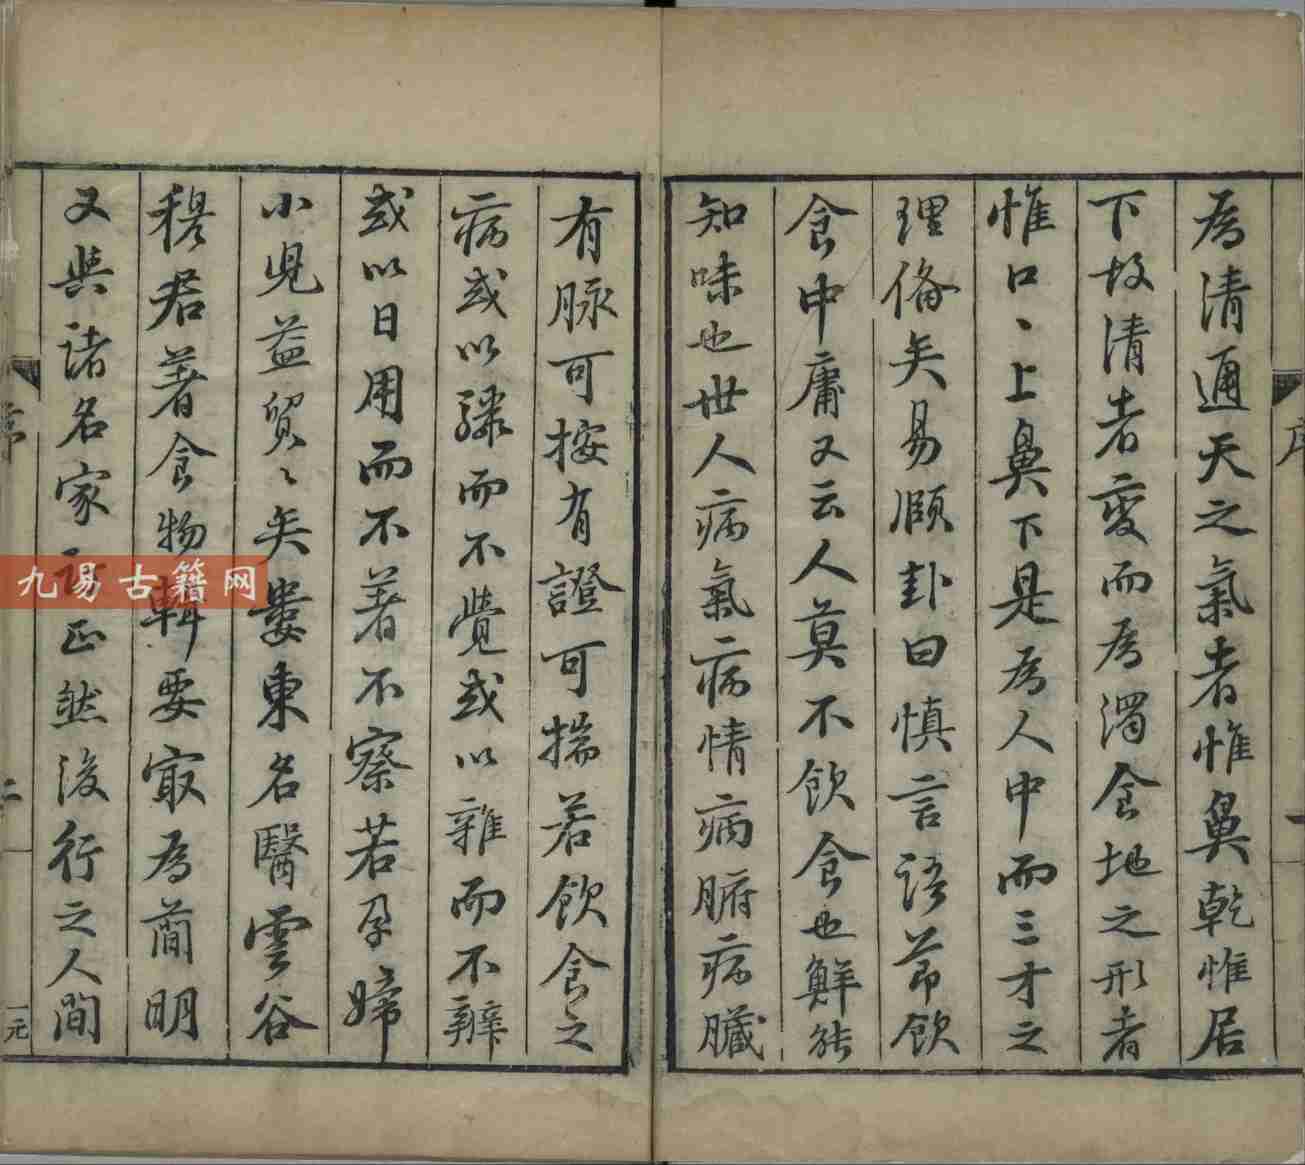 序
一
為清通天之氣者惟鼻乾惟居
下故清者變而為濁食地之形者
惟口、上鼻下是為人中而三才之
理備矣易頤卦曰慎言語節飲
食中庸又云人莫不飲食也鮮能
知味也世人病氣病情病腑病臟
有脉可按有證可揣若飲食之
病或以驟而不覺或以雜而不辨
或以日用而不著不察若孕婦
小兒益貿〻矣婁東名醫雲谷
穆君著食物輯要寂為簡明
又與諸名家 正然後行之人間
二
一元
九易古籍网